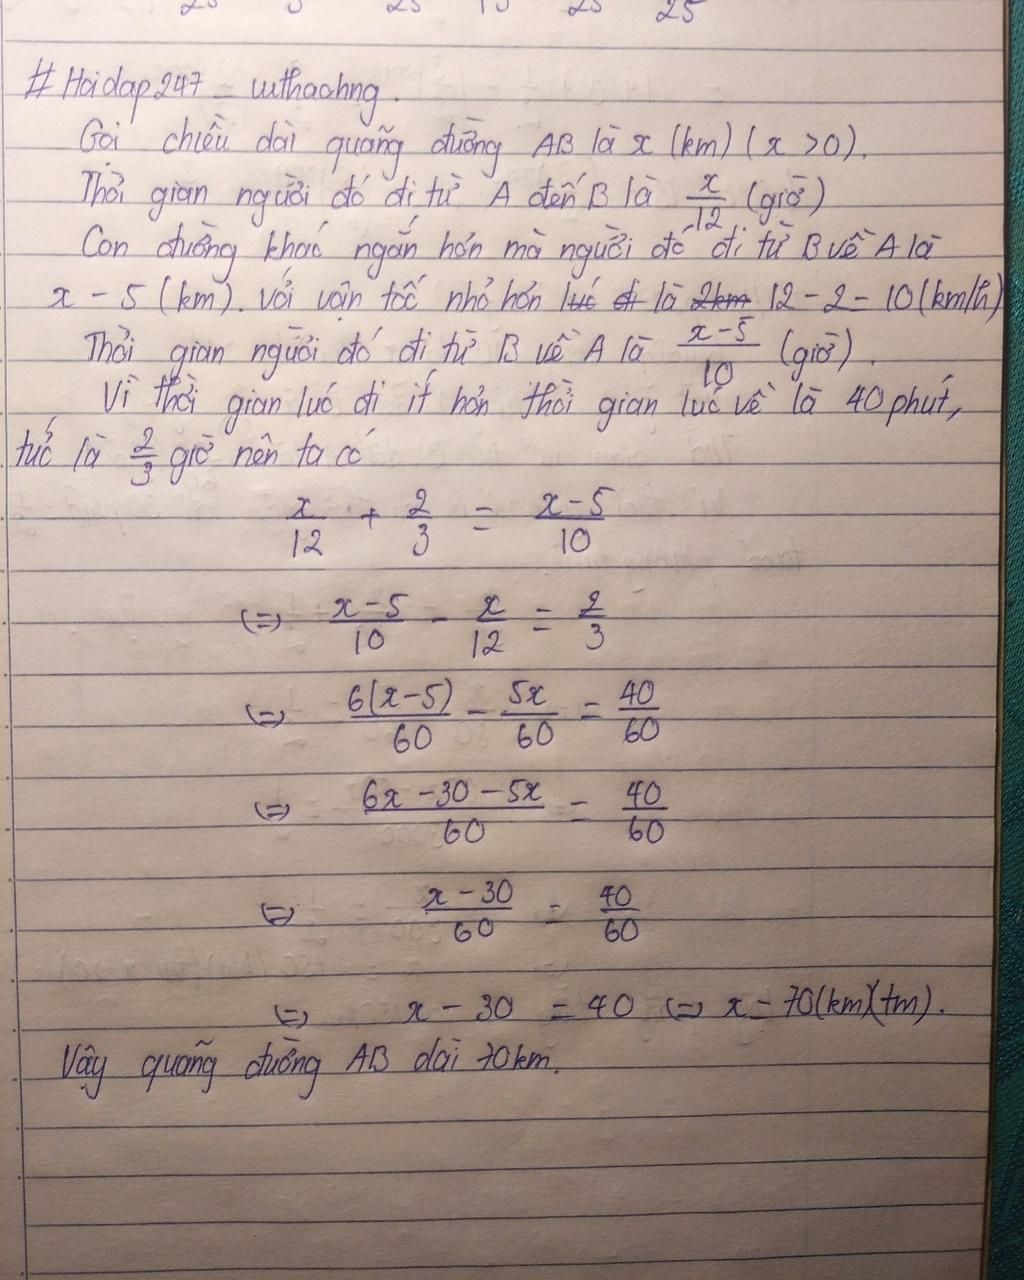 25 5 25 15 25 25
# Hoidap247 _ uuthaohng.
Gọi chiều dài quãng đường AB là x (km) (x > 0).
Thời gian người đó đi từ A đến B là x/12 (giờ)
Con đường khác ngắn hơn mà người đó đi từ B về A là
x - 5 (km). Với vận tốc nhỏ hơn lúc đi là 2km 12 - 2 = 10 (km/h)
Thời gian người đó đi từ B về A là x-5/10 (giờ).
Vì thời gian lúc đi ít hơn thời gian lúc về là 40 phút,
tức là 2/3 giờ nên ta có
x/12 + 2/3 = x-5/10
(=) x-5/10 - x/12 = 2/3
(=) 6(x-5)/60 - 5x/60 = 40/60
(=) 6x-30-5x/60 = 40/60
(=) x-30/60 = 40/60
(=) x - 30 = 40 (=) x = 70(km)(tm).
Vậy quãng đường AB dài 70km.